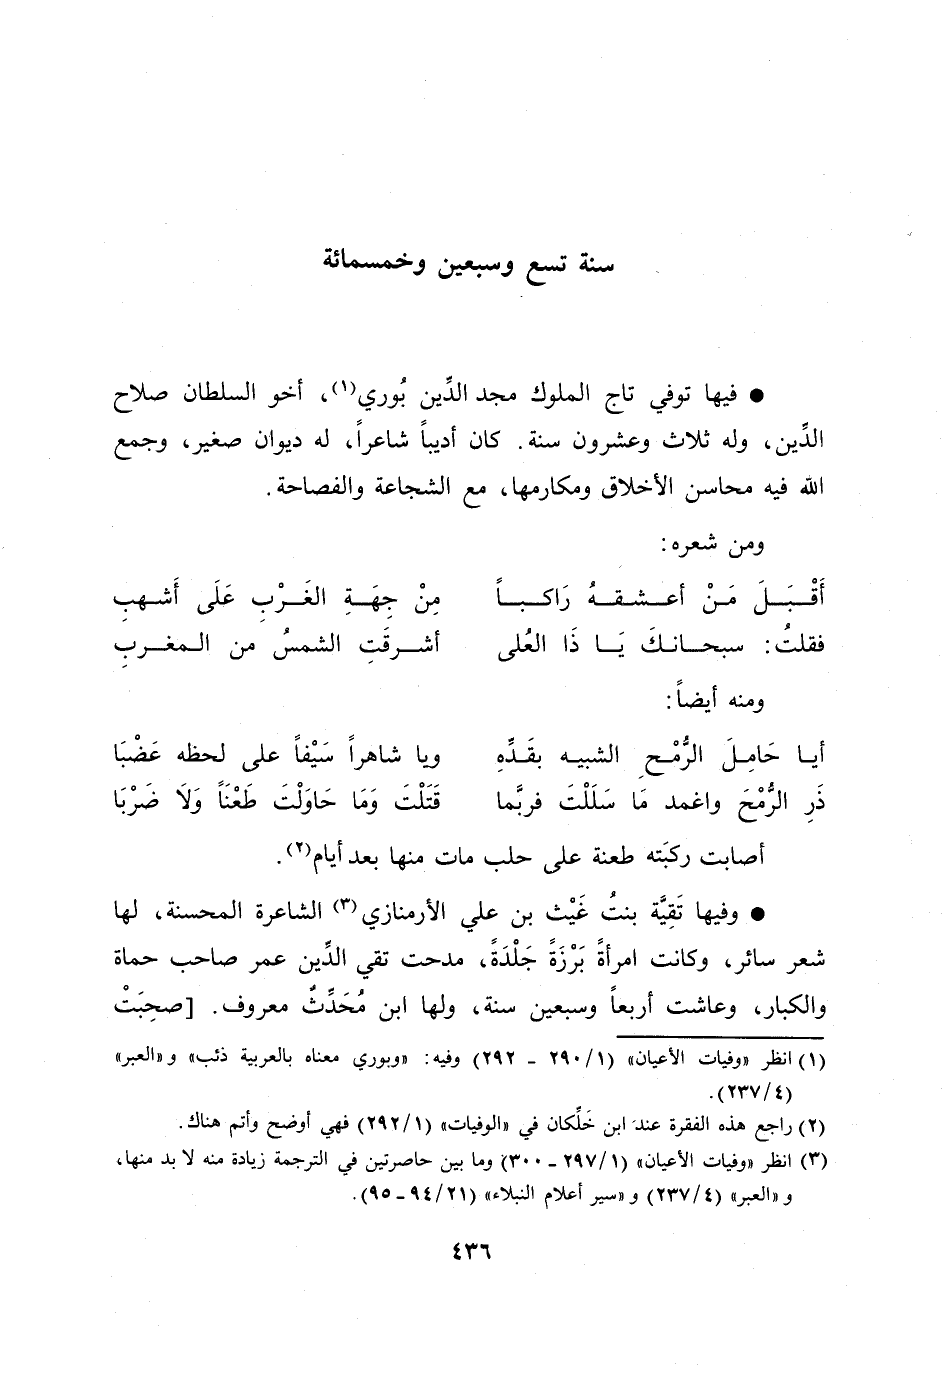 سنة تسع وسبعين وخمسمائة
● فيها توفي تاج الملوك مجد الدِّين بُوري(١)، أخو السلطان صلاح
الدِّين، وله ثلاث وعشرون سنة. كان أديباً شاعراً، له ديوان صغير، وجمع
الله فيه محاسن الأخلاق ومكارمها، مع الشجاعة والفصاحة.
ومن شعره:
أَقْبَلَ مَنْ أعشقهُ رَاكباً مِنْ جِهَةِ الغَرْبِ عَلَى أَشهبِ
فقلتُ: سبحانكَ يَا ذَا العُلى أشرقَتِ الشمسُ من المغربِ
ومنه أيضاً:
أيا حَامِلَ الرُّمْحِ الشبيه بقَدِّهِ ويا شاهراً سَيْفاً على لحظه عَضْبَا
ذَرِ الرُّمْحَ واغمد مَا سَلَلْتَ فربَّما قَتَلْتَ وَمَا حَاوَلْتَ طَعْنَاً وَلَا ضَرْبَا
أصابت ركبَته طعنة على حلب مات منها بعد أيام(٢).
● وفيها تَقِيَّة بنتُ غَيْث بن علي الأرمنازي(٣) الشاعرة المحسنة، لها
شعر سائر، وكانت امرأةً بَرْزَةً جَلْدَةً، مدحت تقي الدِّين عمر صاحب حماة
والكبار، وعاشت أربعاً وسبعين سنة، ولها ابن مُحَدِّثٌ معروف. [صحبَتْ
(١) انظر «وفيات الأعيان» (١/ ٢٩٠ - ٢٩٢) وفيه: «وبوري معناه بالعربية ذئب» و «العبر»
(٤/ ٢٣٧).
(٢) راجع هذه الفقرة عند ابن خَلِّكان في «الوفيات» (١/ ٢٩٢) فهي أوضح وأتم هناك.
(٣) انظر «وفيات الأعيان» (١/ ٢٩٧ - ٣٠٠) وما بين حاصرتين في الترجمة زيادة منه لا بد منها،
و «العبر» (٤/ ٢٣٧) و «سير أعلام النبلاء» (٢١/ ٩٤ - ٩٥).
٤٣٦